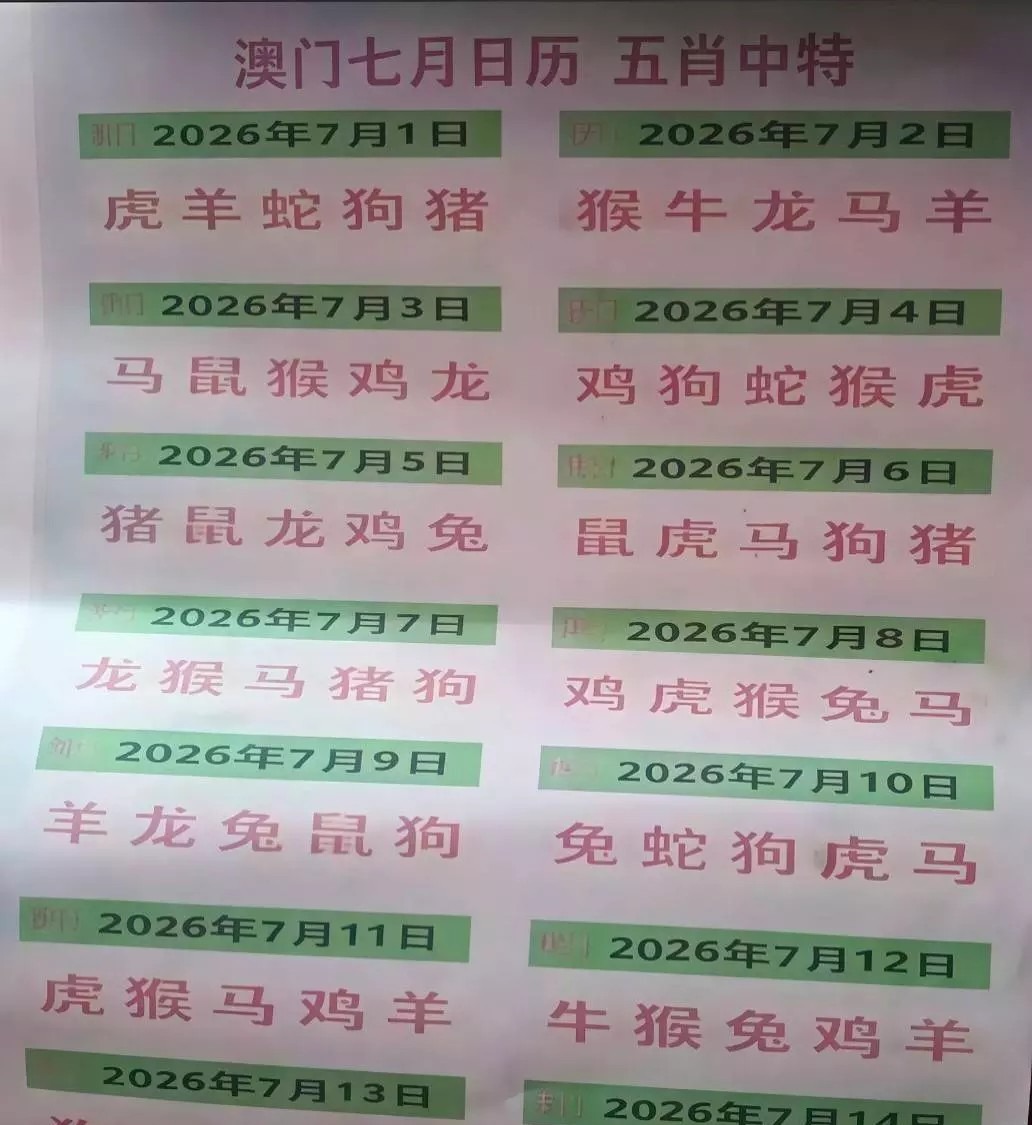 澳门七月日历 五肖中特
2026年7月1日
2026年7月2日
虎羊蛇狗猪
猴牛龙马羊
2026年7月3日
2026年7月4日
马鼠猴鸡龙
鸡狗蛇猴虎
2026年7月5日
2026年7月6日
猪鼠龙鸡兔
鼠虎马狗猪
2026年7月7日
2026年7月8日
龙猴马猪狗
鸡虎猴兔马
2026年7月9日
2026年7月10日
羊龙兔鼠狗
兔蛇狗虎马
2026年7月11日
2026年7月12日
虎猴马鸡羊
牛猴兔鸡羊
2026年7月13日
2026年7月14日